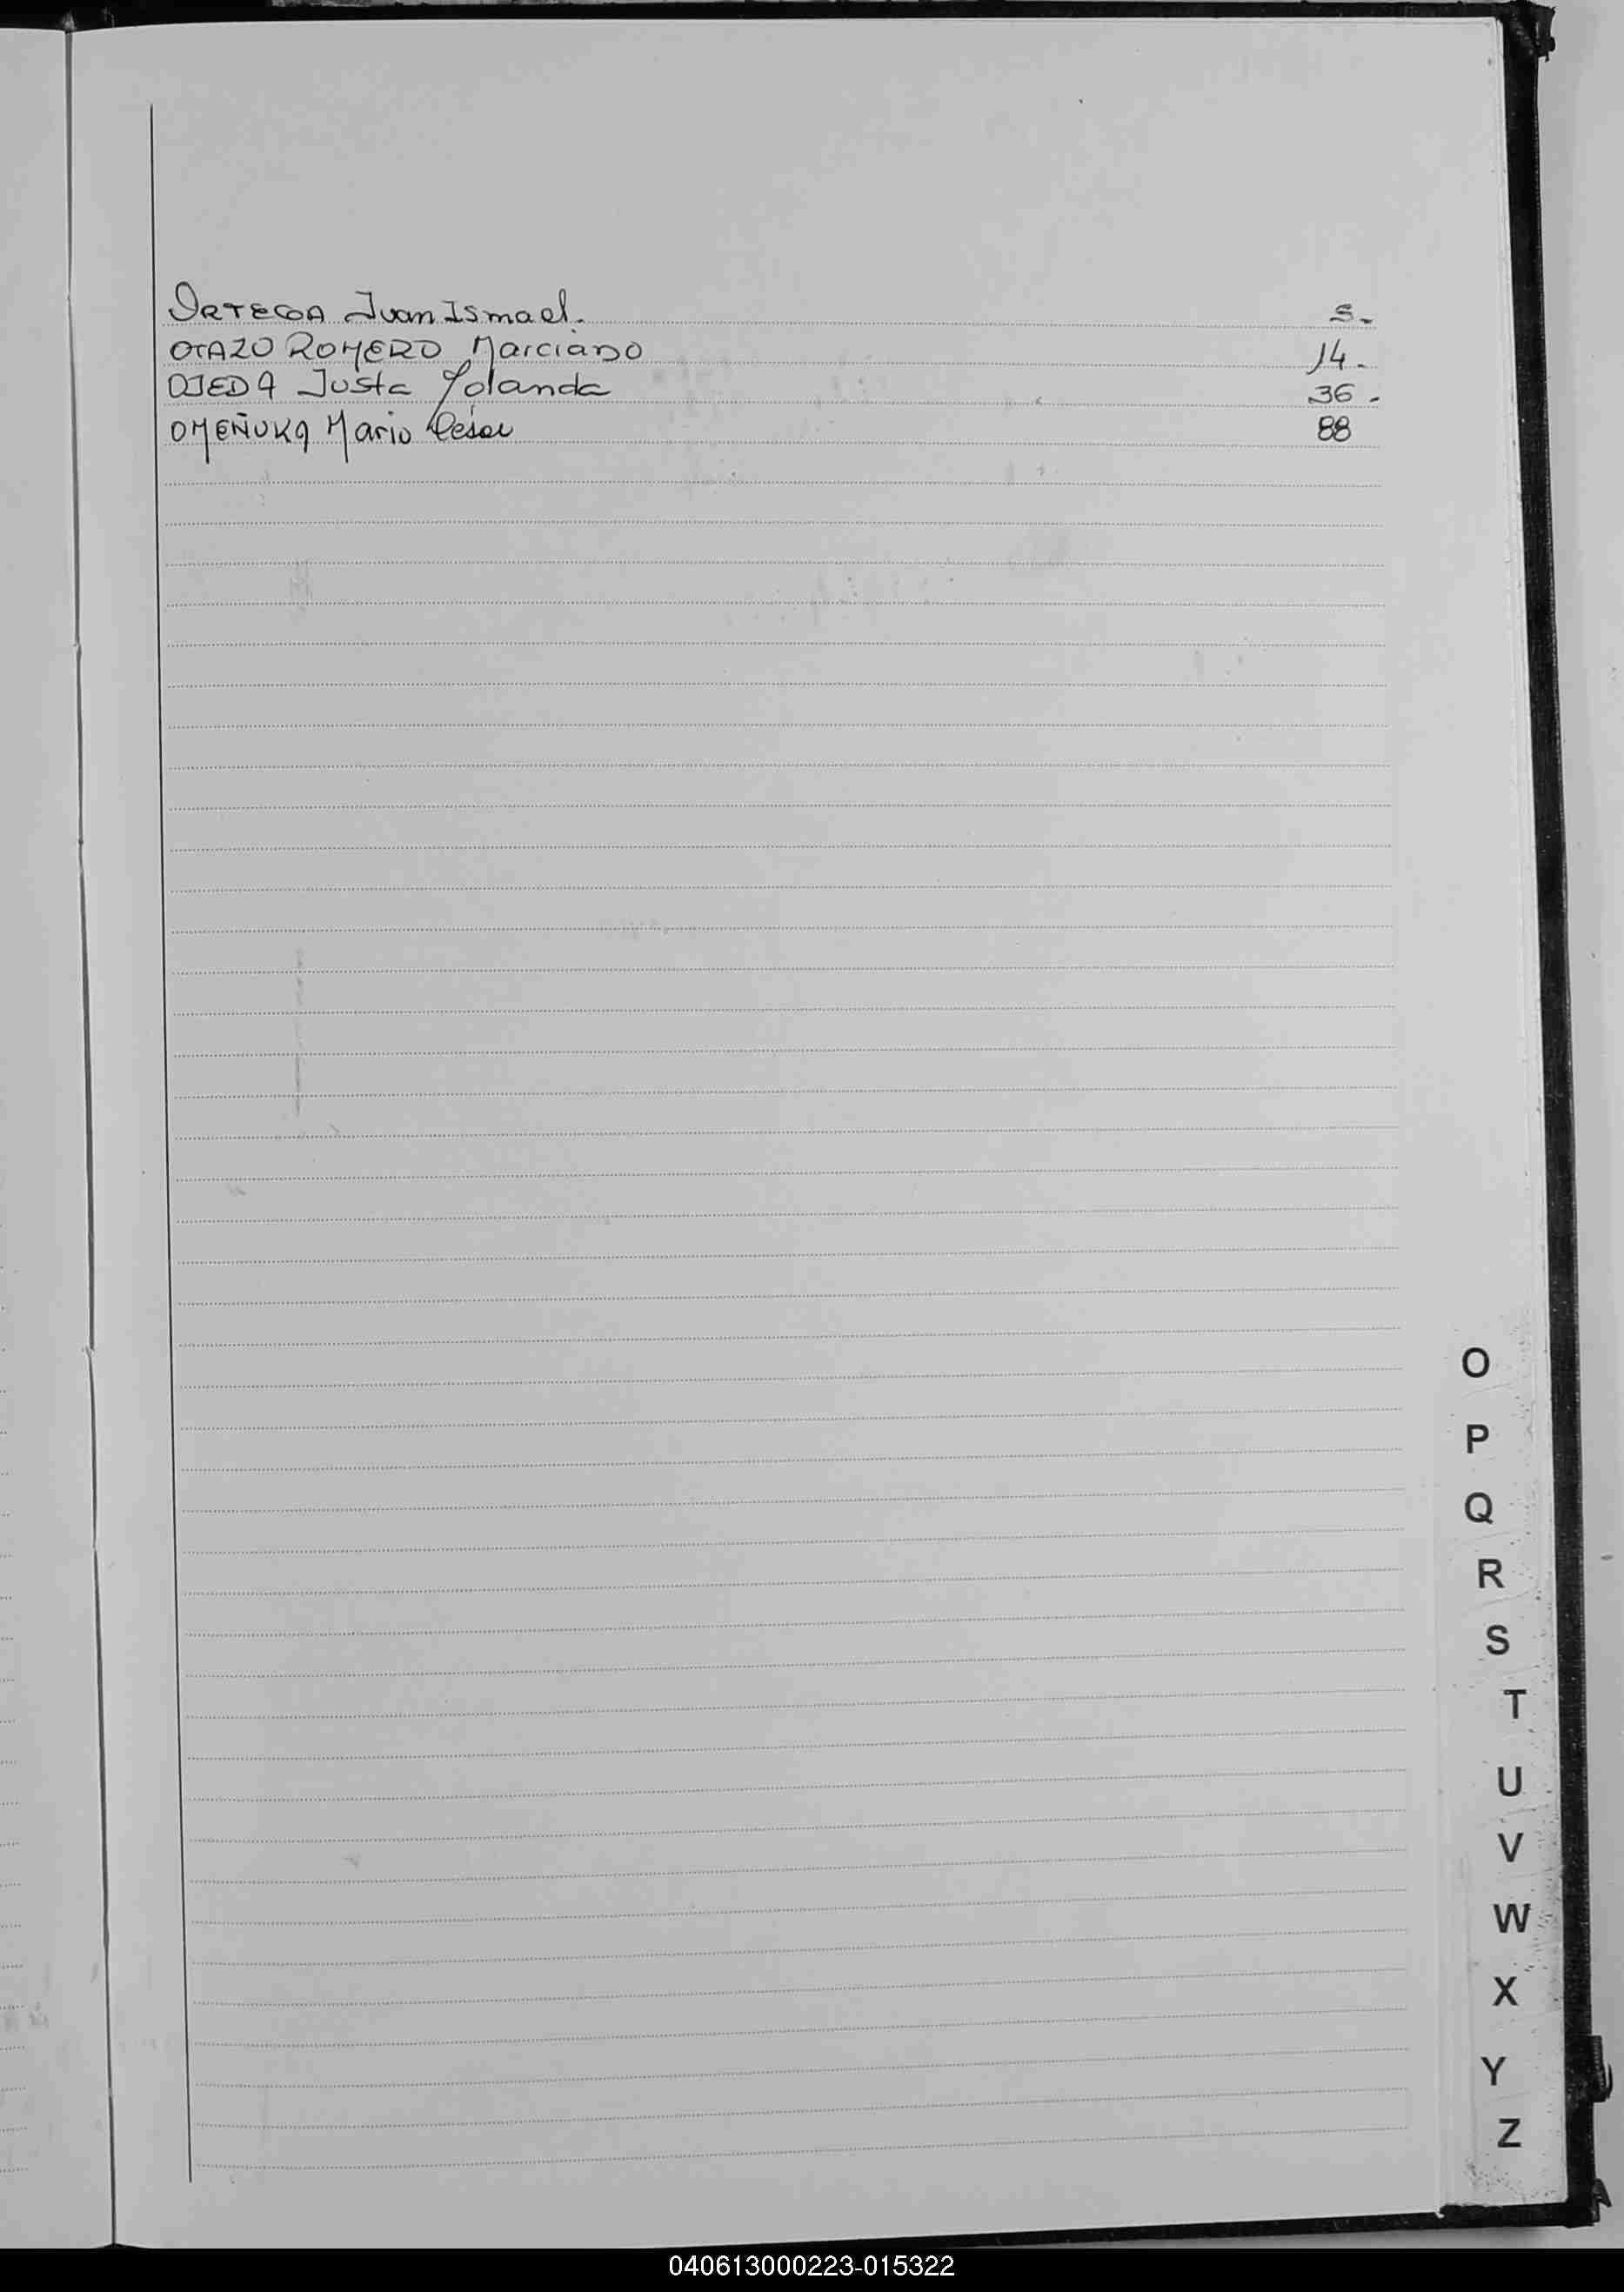 ORTEGA Juan Ismael. 5-
OTAZO ROMERO Marciano 14-
OJEDA Justa Yolanda 36-
OMEÑUKA Mario César 88
O
P
Q
R
S
T
U
V
W
X
Y
Z
040613000223-015322